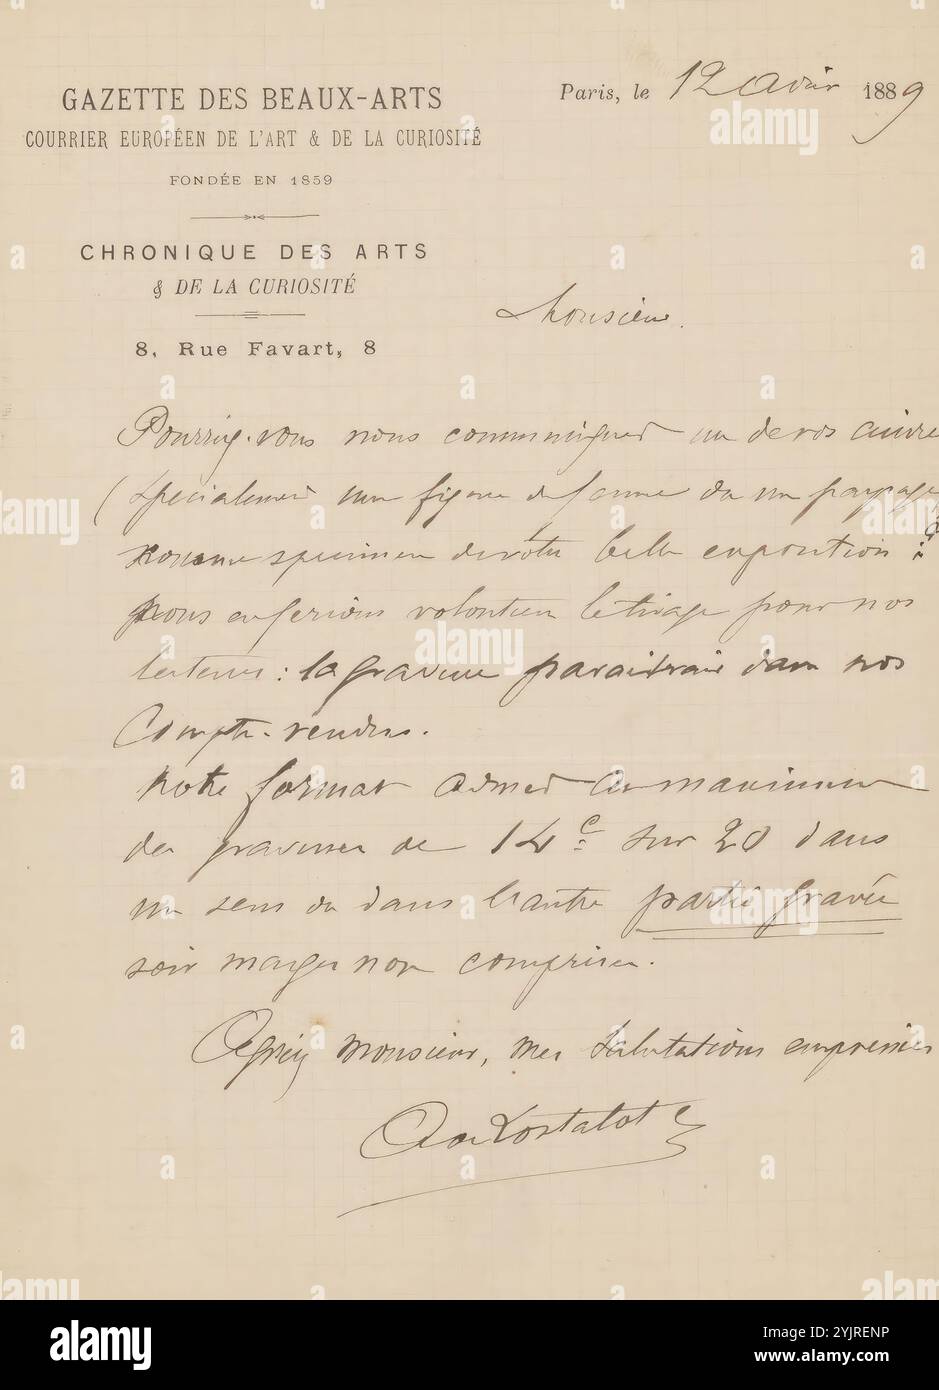 GAZETTE DES BEAUX-ARTS
COURRIER EUROPÉEN DE L'ART & DE LA CURIOSITÉ
FONDÉE EN 1859
CHRONIQUE DES ARTS
& DE LA CURIOSITÉ
8, Rue Favart, 8
Paris, le 12 avril 1889
Monsieur.
Pourriez-vous nous communiquer un de vos cuivres
(spécialement une figure de femme ou un paysage)
comme specimen de votre belle exposition :
Nous en ferions volontiers le tirage pour nos
lecteurs : la gravure paraitrait dans nos
Compte-rendus.
Notre format admet au maximum
des gravures de 14c sur 20 dans
un sens ou dans l'autre partie gravée
soit marges non comprises.
Agréez Monsieur, mes salutations empressées
A de Lostalot
alamy
alamy
Image ID: 2YJRENP
www.alamy.com